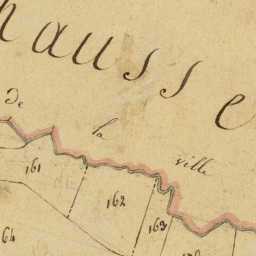 hausse
de la ville
161
162
163
64